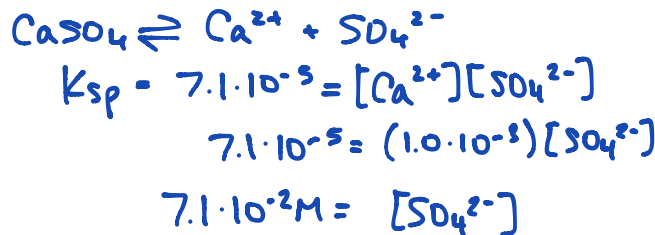 CaSO₄ ⇌ Ca²⁺ + SO₄²⁻
Ksp = 7.1·10⁻⁵ = [Ca²⁺][SO₄²⁻]
7.1·10⁻⁵ = (1.0·10⁻³)[SO₄²⁻]
7.1·10⁻²M = [SO₄²⁻]